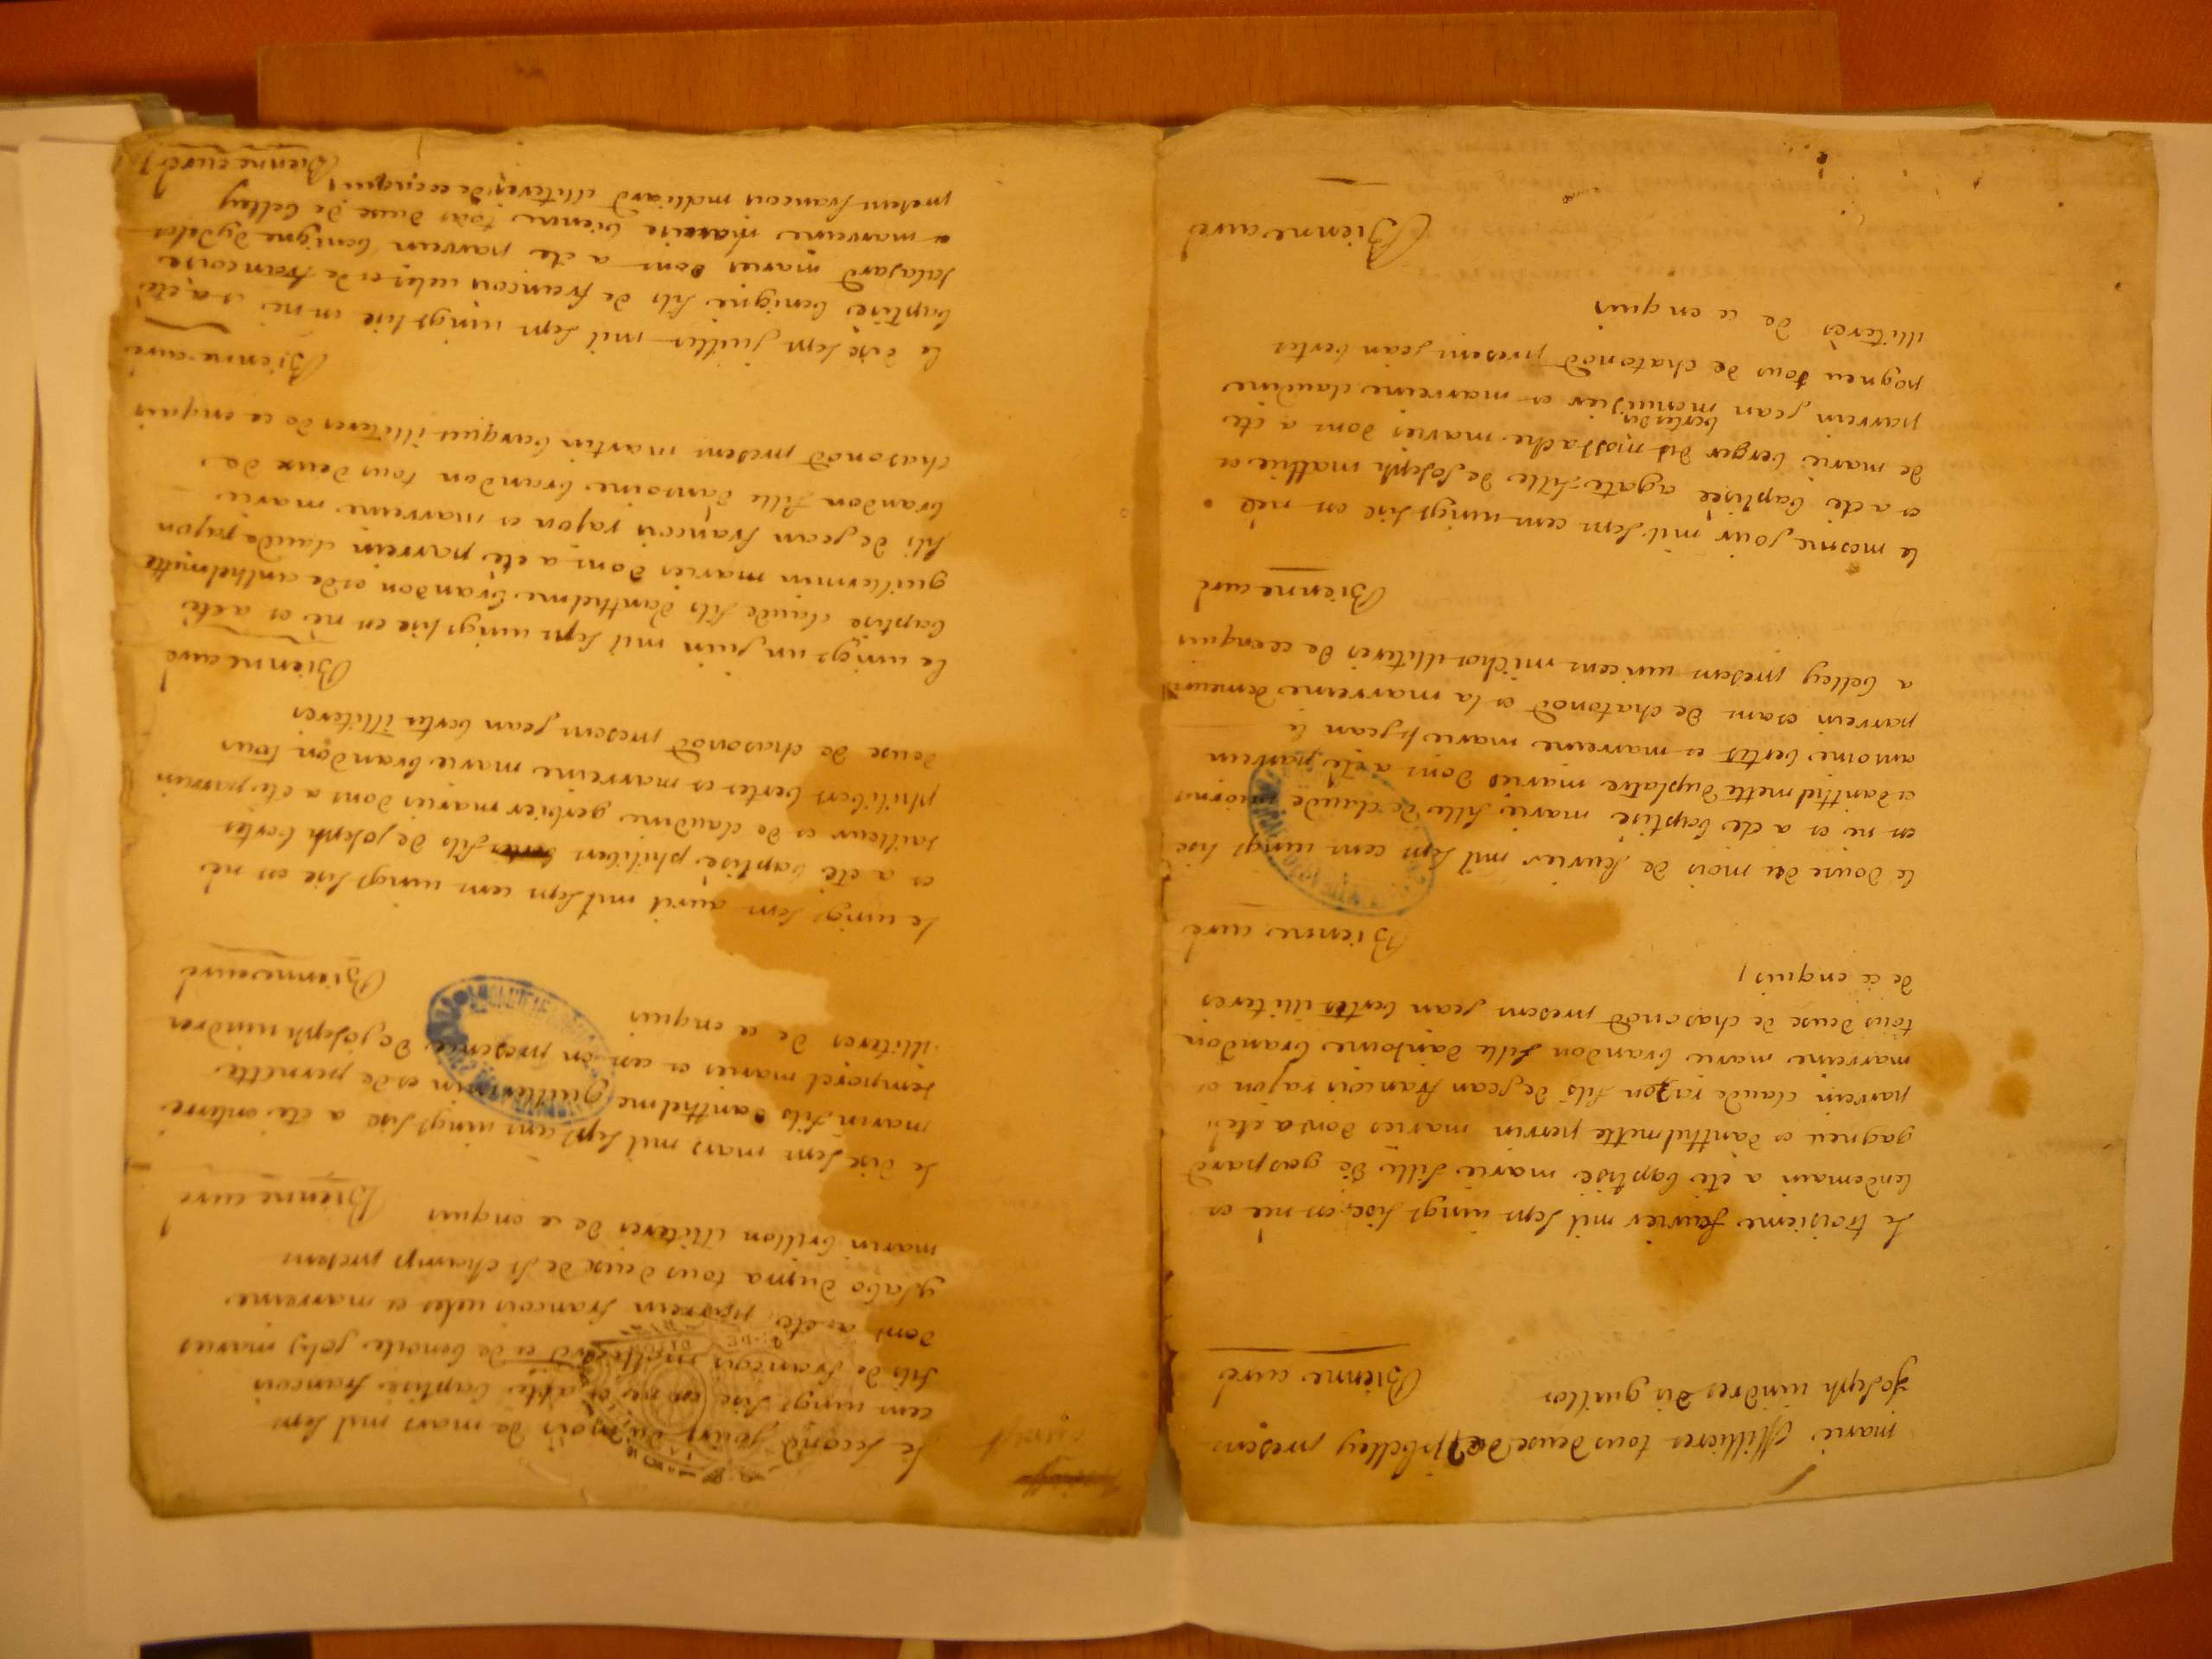 marie Millieres tous deuse de belley presens
Joseph uindres dis guillos
Bienne curé
Le troisieme feurier mil sepn uingt sise en né es
lendemain a eté baptisé marie fille de gaspard
gagneu es danthelmette perrin mariés dons a eté
parrein claude rajon fils de jean francois rajon es
marreine marie brandon fille dantoine brandon
tous deuse de chasonod presens jean bertes illiteres
de ce enquis
Bienne curé
le douse du mois de feurier mil sepn cens uingt sise
en né es a eté baptisé marie fille de claude
es danthelmette duplatre mariés dons a eté parrein
antoine bertet es marreine marie jean le
parrein esans de chatonod es la marreine demeure
a belley presens uincens michos illiteres de ce enquis
Bienne curé
le mesme jour mil sepn cens uingt sise en née
es a eté baptisée agate fille de Joseph mathie es
de marie berger dis mostache mariés dons a eté
bertes dis
parrein jean menusier es marreine claudine
pogneu tous de chatonod presens jean bertes
illiterés de ce enquis
Bienne curé
Le second jour du mois de mars mil sepn
cens uingt sise en né es a eté baptisé francois
fils de francois es de benoite joly mariés
dons a eté parrein francois ueles es marreine
dupra tous deux de st champ presens
marin brillon illiteres de ce enquis
Bienne curé
Le dise sepn mars mil sepn cens uingt sise a eté enterré
marin fils danthelme Guillermin es de pernette
temporel mariés es ce en presence de joseph uindres
illiteres de ce enquis
Bienne curé
Le uingt sepn auril mil sepn cens uingt sise en né
es a eté baptisé philibers fils de joseph bertes
tailleur es de claudine gerbier mariés dons a eté parrein
philibers bertes es marreine marie brandon tous
deuse de chasonod presens jean bertes illiteres
Bienne curé
Le uingt un juin mil sepn uingt sise en né es a eté
baptisé claude fils danthelme brandon es de anthelmette
guillermin mariés dons a eté parrein claude rajon
fils de jean francois rajon es marreine marie
brandon fille dantoine brandon tous deux de
chasonod presens martin barquis illiteres de ce enquis
Bienne curé
Le dise sepn juillet mil sepn uingt sise en né es a eté
baptisé benigne fils de francois ueles es de francoise
salasard mariés dons a eté parrein benigne dydelos
es marreine marie bienne tous deuse de belley
presens francois malliard illiteres de ce enquis
Bienne curé